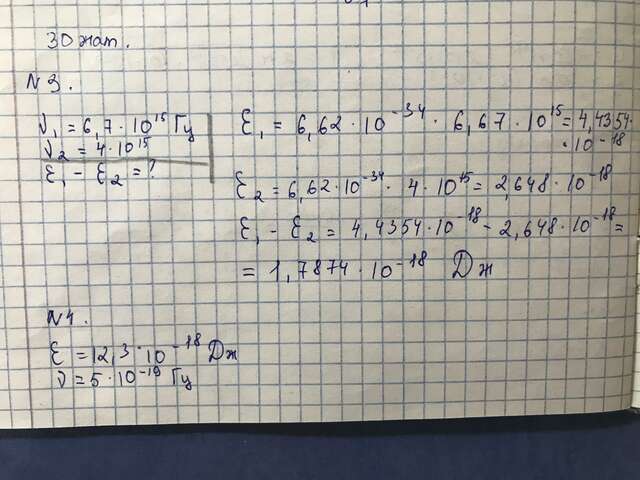 30 жат.
N 3.
ν₁ = 6,7 · 10¹⁵ Гц
ν₂ = 4 · 10¹⁵
Ɛ₁ - Ɛ₂ = ?
Ɛ₁ = 6,62 · 10⁻³⁴ · 6,67 · 10¹⁵ = 4,4354 ·
· 10⁻¹⁸
Ɛ₂ = 6,62 · 10⁻³⁴ · 4 · 10¹⁵ = 2,648 · 10⁻¹⁸
Ɛ₁ - Ɛ₂ = 4,4354 · 10⁻¹⁸ - 2,648 · 10⁻¹⁸ =
= 1,7874 · 10⁻¹⁸ Дж
N 4.
Ɛ = 12,3 · 10⁻¹⁸ Дж
ν = 5 · 10⁻¹⁹ Гц